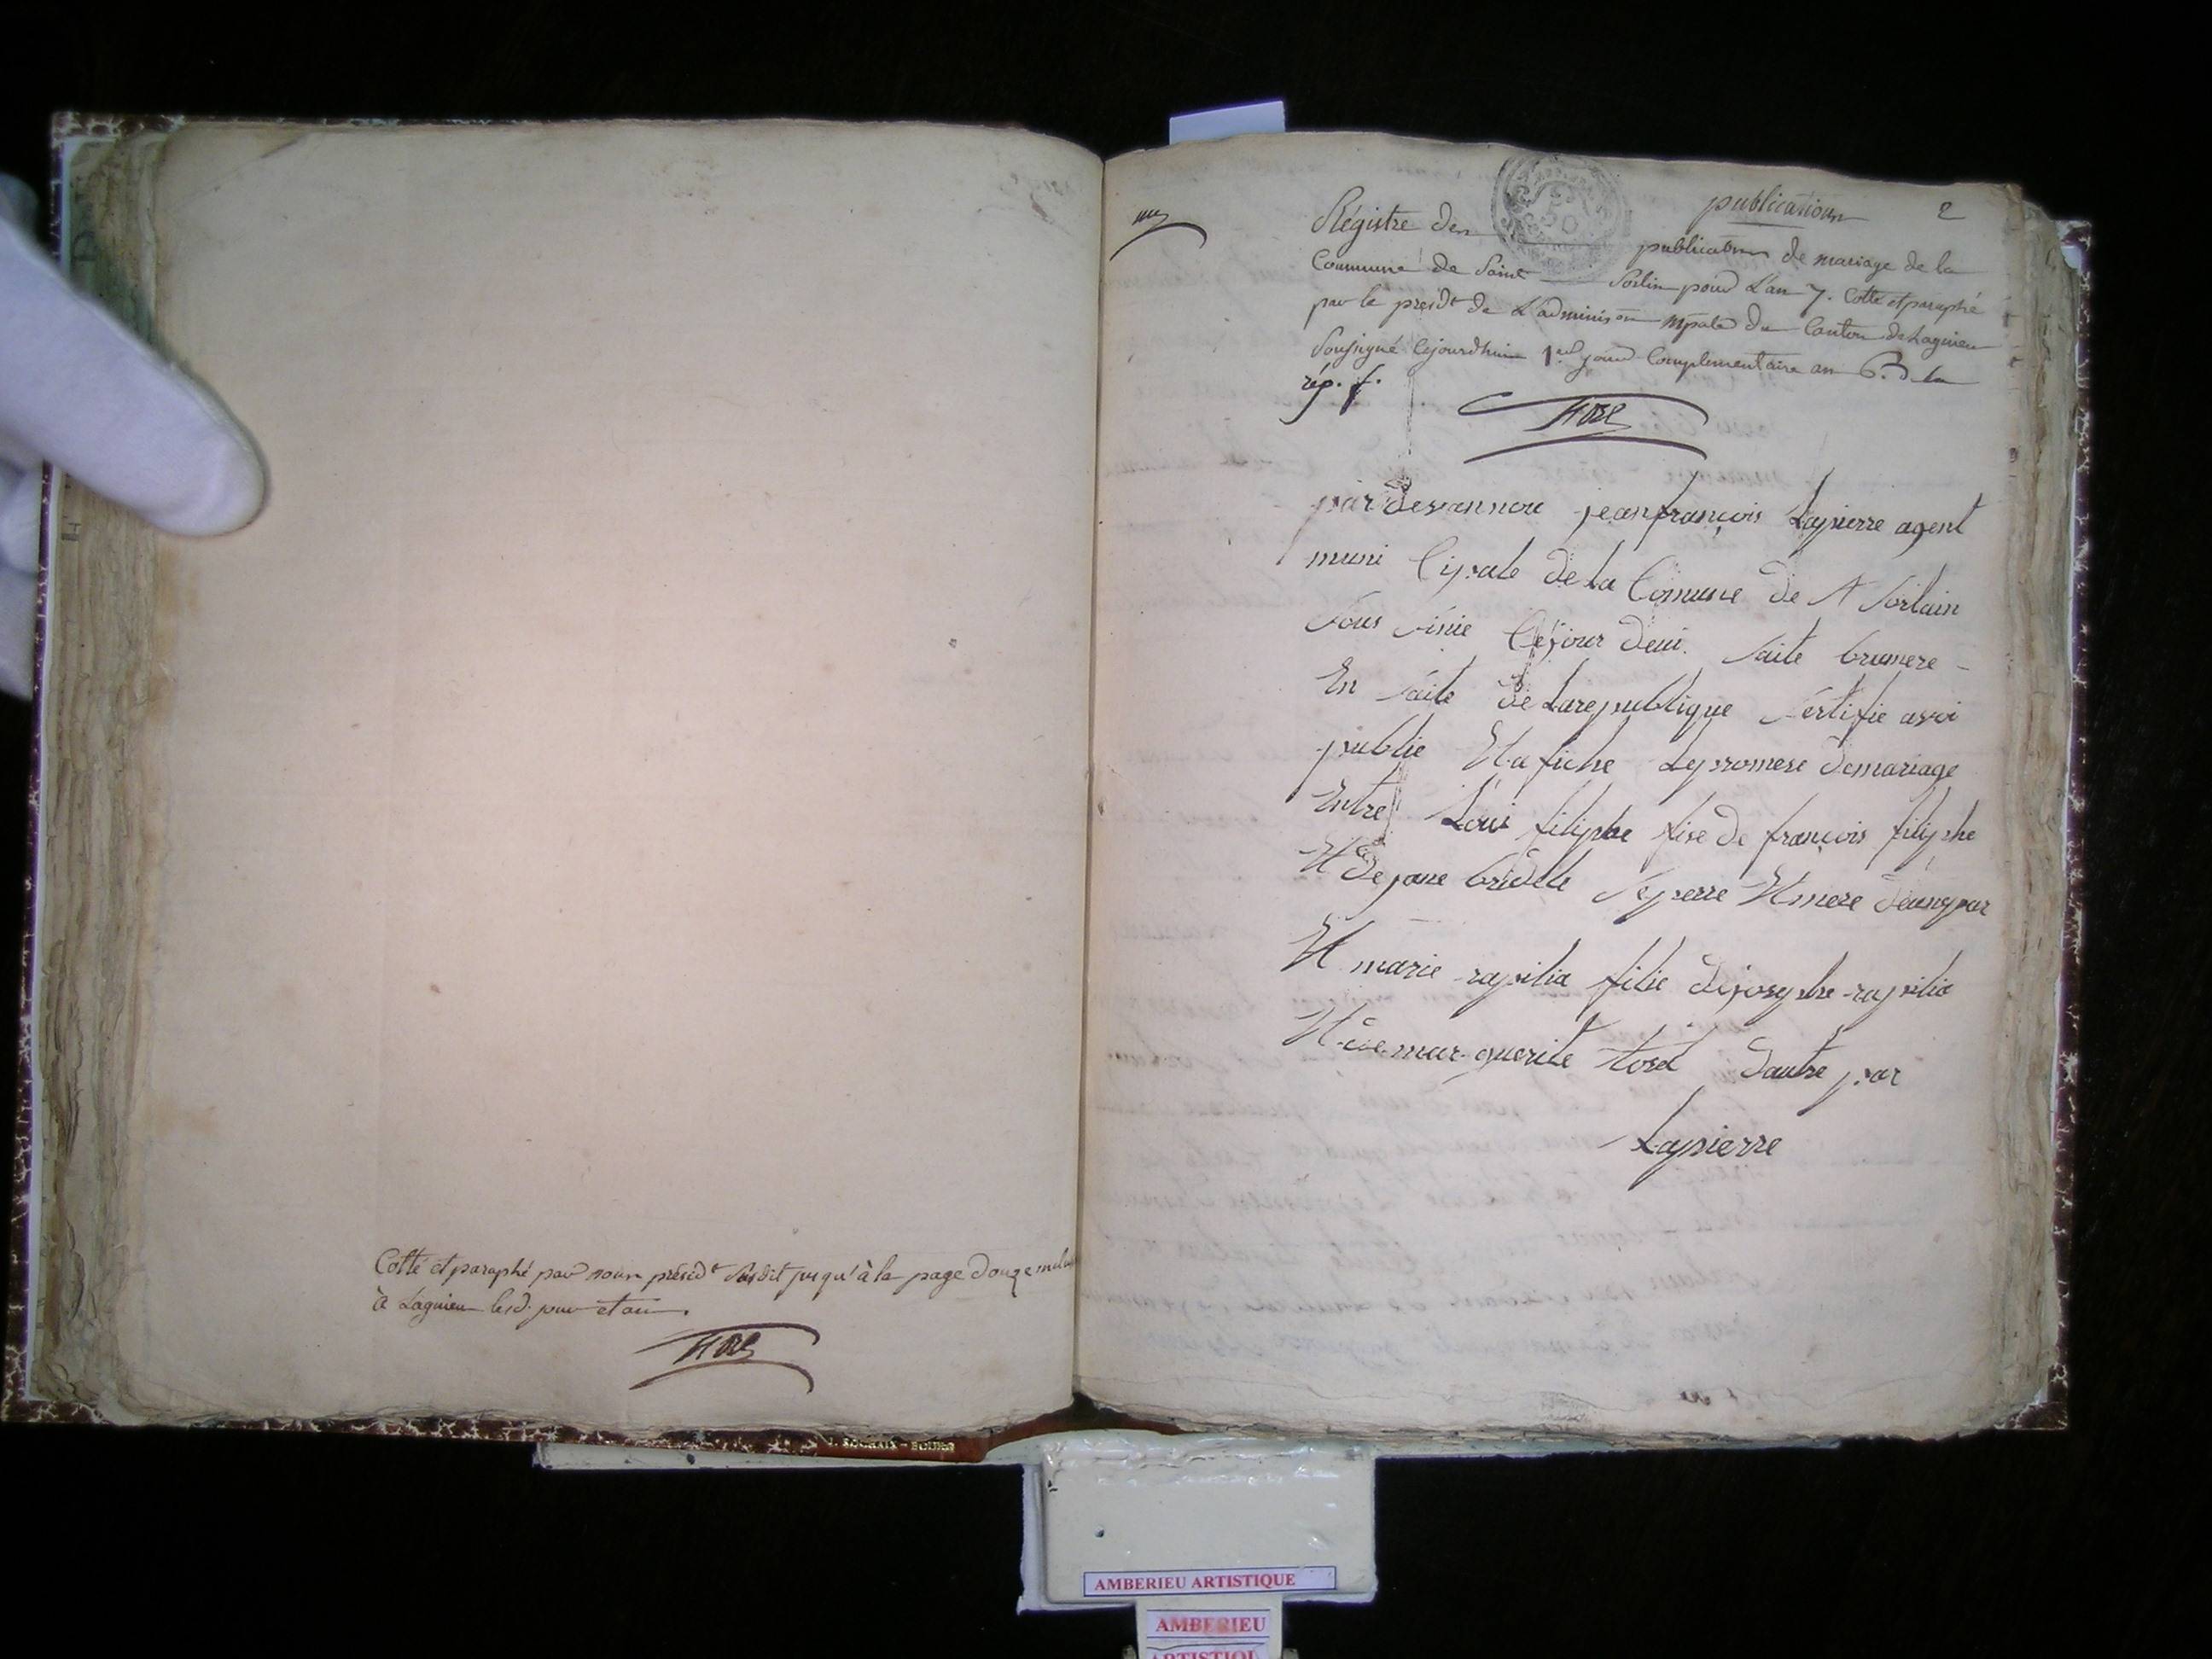 Cotté et paraphé par nous présidt susdit jusqu'à la page douze
à Lagnieu lesd. jour et an.
publications
2
Régistre des publications de mariage de la
Commune de Saint Sorlin pour L'an 7. Cotté et paraphé
par le presidt de L'administ.on mpale du Canton de Lagnieu
Soussigné Cejourdhui 1er jour Complementaire an 6. de la
rép. f.
par devannou jeanfrançois Lapierre agent
muni Cipale de la Comune de St Sorlain
sous sinie Cejour deui. saite brumere -
En saite de Larepublique sertifie avoi
publie Et afiche Lepromese demariage
Entre Loui filiphe fise de françois filiphe
Et de jane bridelle sepere Et mere deunepar
Et marie rapilia filie dejosephe rapilia
Et de marguerite tord dautre par
Lapierre
AMBERIEU ARTISTIQUE
AMBERIEU
ARTISTIQUE